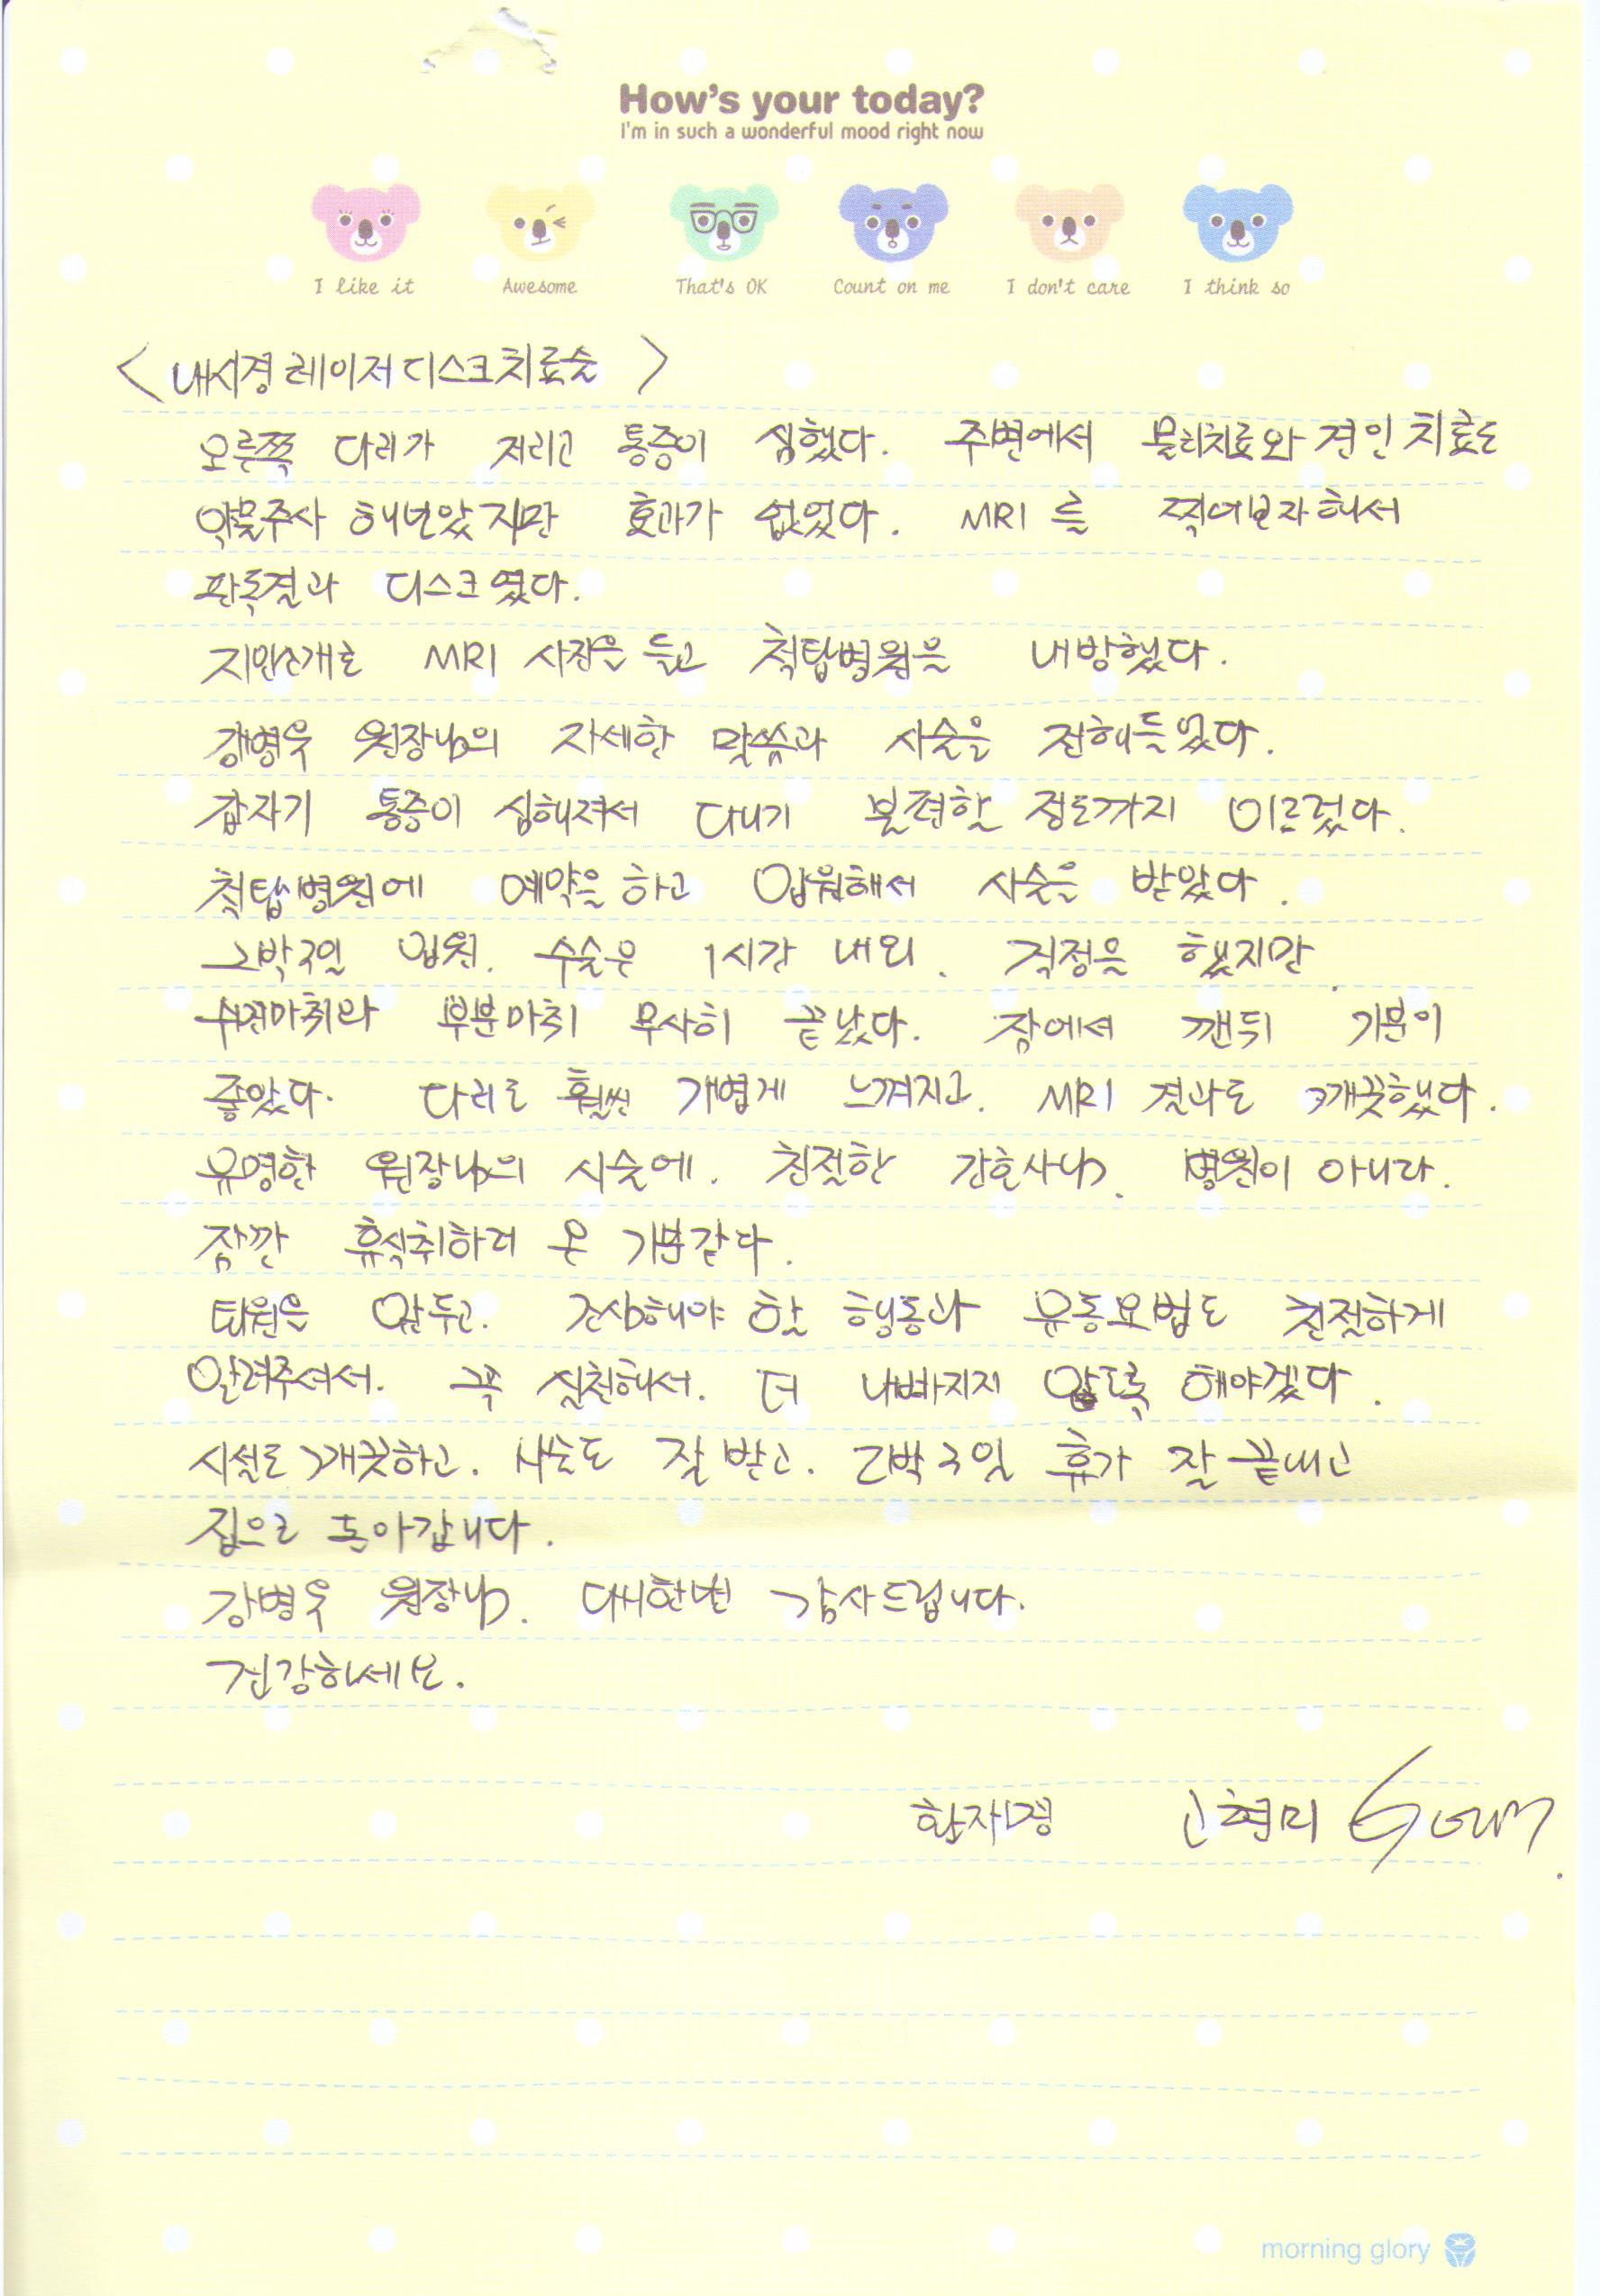 How's your today?
I'm in such a wonderful mood right now
I like it Awesome That's OK Count on me I don't care I think so
< 내시경 레이저 디스크 치료술 >
오른쪽 다리가 저리고 통증이 심했다. 주변에서 물리치료와 견인 치료도
약물주사 해보았지만 효과가 없었다. MRI 를 찍어보자해서
판독결과 디스크였다.
지인소개로 MRI 사진을 들고 척탑병원을 내방했다.
강병욱 원장님의 자세한 말씀과 시술을 전해들었다.
갑자기 통증이 심해져서 다니기 불편할 정도까지 이르렀다.
척탑병원에 예약을 하고 입원해서 시술을 받았다.
2박3일 입원. 수술은 1시간 내외. 걱정을 했지만
수면마취와 부분마취 무사히 끝났다. 잠에서 깬뒤 기분이
좋았다. 다리도 훨씬 가볍게 느껴지고. MRI 결과도 깨끗했다.
유명한 원장님의 시술에. 친절한 간호사님. 병원이 아니라.
잠깐 휴식취하러 온 기분같다.
퇴원을 앞두고. 조심해야 할 행동과 운동요법도 친절하게
알려주셔서. 꼭 실천해서. 더 나빠지지 않도록 해야겠다.
시설도 깨끗하고. 시술도 잘 받고. 2박 3일 휴가 잘 끝내고
집으로 돌아갑니다.
강병욱 원장님. 다시한번 감사드립니다.
건강하세요.
환자명 고현미
morning glory